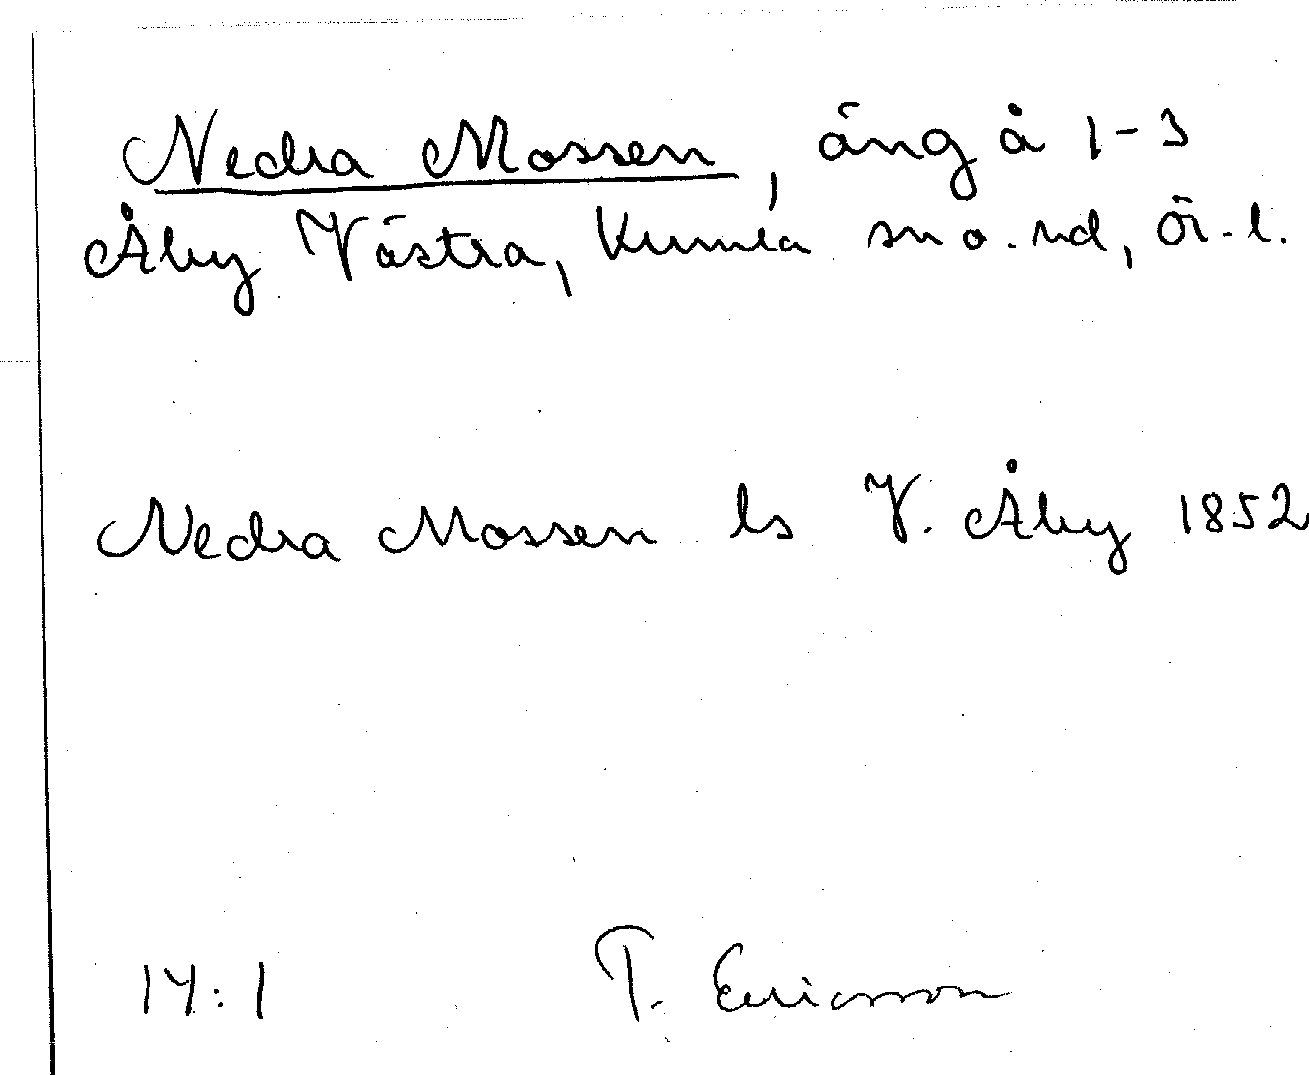 Nedra Mossen, äng å 1-3
Åby Västra, Kumla sn o. hd, Ör. l.
Nedra Mossen ls V. Åby 1852
14:1 T. Ericsson